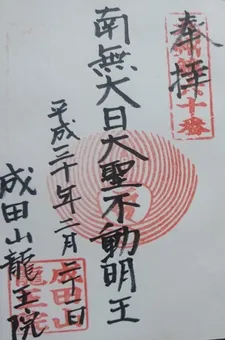 奉拝
南無大日大聖不動明王
平成三十年二月二十一日
成田山龍王院
成田山
龍王院